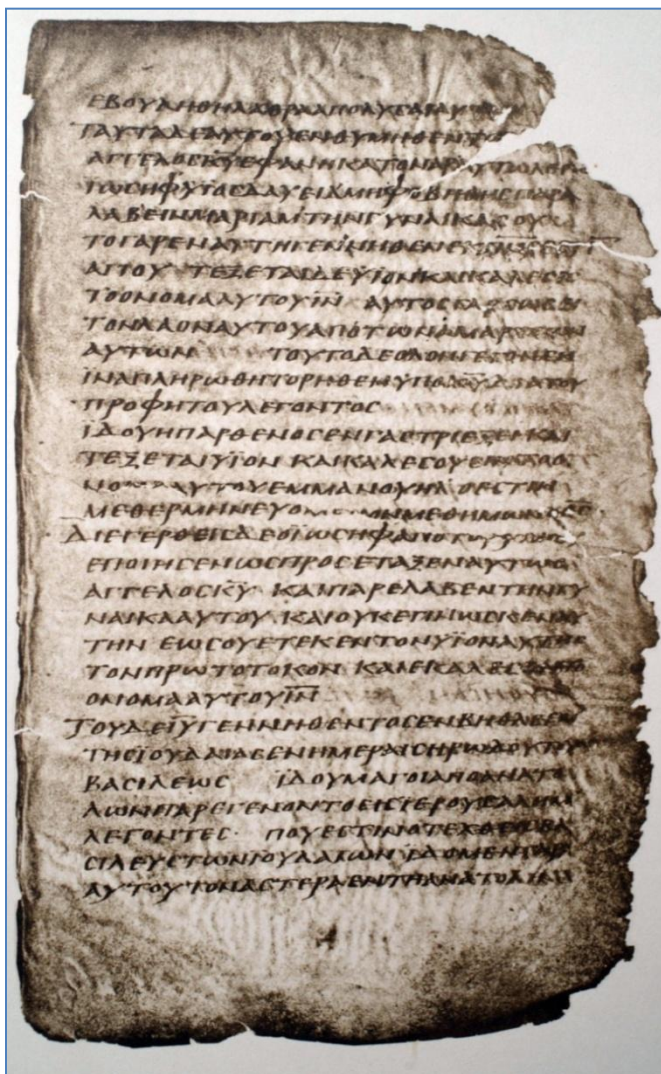 ΕΒΟΥΛΗΘΗ ΛΑΘΡΑ ΑΠΟΛΥΣΑΙ
ΤΑΥΤΑ ΔΕ ΑΥΤΟΥ ΕΝΘΥΜΗΘΕΝΤΟ
ΑΓΓΕΛΟΣ Κ̅Υ̅ ΕΦΑΝΗ ΚΑΤ ΟΝΑΡ ΑΥΤΩ
ΪΩΣΗΦ ΥΙΟΣ ΔΑΥΕΙΔ ΜΗ ΦΟΒΗΘΗΣ ΠΑΡΑ
ΛΑΒΕΙΝ ΜΑΡΙΑΜ ΤΗΝ ΓΥΝΑΙΚΑ ΣΟΥ
ΤΟ ΓΑΡ ΕΝ ΑΥΤΗ ΓΕΝΝΗΘΕΝ ΕΚ Π̅Ν̅Σ̅ ΕΣΤΙ
ΑΓΙΟΥ ΤΕΞΕΤΑΙ ΔΕ ΥΪΟΝ ΚΑΙ ΚΑΛΕΣΙΣ
ΤΟ ΟΝΟΜΑ ΑΥΤΟΥ Ι̅Ν̅ ΑΥΤΟΣ ΓΑΡ ΣΩΣΕΙ
ΤΟΝ ΛΑΟΝ ΑΥΤΟΥ ΑΠΟ ΤΩΝ ΑΜΑΡΤΙΩΝ
ΑΥΤΩΝ ΤΟΥΤΟ ΔΕ ΟΛΟΝ ΓΕΓΟΝΕΝ
ΪΝΑ ΠΛΗΡΩΘΗ ΤΟ ΡΗΘΕΝ ΥΠΟ Κ̅Υ̅ ΔΙΑ ΤΟΥ
ΠΡΟΦΗΤΟΥ ΛΕΓΟΝΤΟΣ
ΪΔΟΥ Η ΠΑΡΘΕΝΟΣ ΕΝ ΓΑΣΤΡΙ ΕΞΕΙ ΚΑΙ
ΤΕΞΕΤΑΙ ΥΪΟΝ ΚΑΙ ΚΑΛΕΣΟΥΣΙΝ ΤΟ Ο
ΝΟΜΑ ΑΥΤΟΥ ΕΜΜΑΝΟΥΗΛ Ο ΕΣΤΙΝ
ΜΕΘΕΡΜΗΝΕΥΟΜΕΝΟΝ ΜΕΘ ΗΜΩΝ Ο Θ̅Σ̅
ΔΙΕΓΕΡΘΕΙΣ ΔΕ Ο ΪΩΣΗΦ ΑΠΟ ΤΟΥ ΥΠΝΟΥ
ΕΠΟΙΗΣΕΝ ΩΣ ΠΡΟΣΕΤΑΞΕΝ ΑΥΤΩ Ο
ΑΓΓΕΛΟΣ Κ̅Υ̅ ΚΑΙ ΠΑΡΕΛΑΒΕΝ ΤΗΝ ΓΥ
ΝΑΙΚΑ ΑΥΤΟΥ ΚΑΙ ΟΥΚ ΕΓΙΝΩΣΚΕΝ ΑΥ
ΤΗΝ ΕΩΣ ΟΥ ΕΤΕΚΕΝ ΤΟΝ ΥΪΟΝ ΑΥΤΗΣ
ΤΟΝ ΠΡΩΤΟΤΟΚΟΝ ΚΑΙ ΕΚΑΛΕΣΕΝ ΤΟ
ΟΝΟΜΑ ΑΥΤΟΥ Ι̅Ν̅
ΤΟΥ ΔΕ Ι̅Υ̅ ΓΕΝΝΗΘΕΝΤΟΣ ΕΝ ΒΗΘΛΕΕΜ
ΤΗΣ ΪΟΥΔΑΙΑΣ ΕΝ ΗΜΕΡΑΙΣ ΗΡΩΔΟΥ ΤΟΥ
ΒΑΣΙΛΕΩΣ ΪΔΟΥ ΜΑΓΟΙ ΑΠΟ ΑΝΑΤΟ
ΛΩΝ ΠΑΡΕΓΕΝΟΝΤΟ ΕΙΣ ΙΕΡΟΥΣΑΛΗΜ
ΛΕΓΟΝΤΕΣ· ΠΟΥ ΕΣΤΙΝ Ο ΤΕΧΘΕΙΣ ΒΑ
ΣΙΛΕΥΣ ΤΩΝ ΙΟΥΔΑΙΩΝ ΕΙΔΟΜΕΝ ΓΑΡ
ΑΥΤΟΥ ΤΟΝ ΑΣΤΕΡΑ ΕΝ ΤΗ ΑΝΑΤΟΛΗ